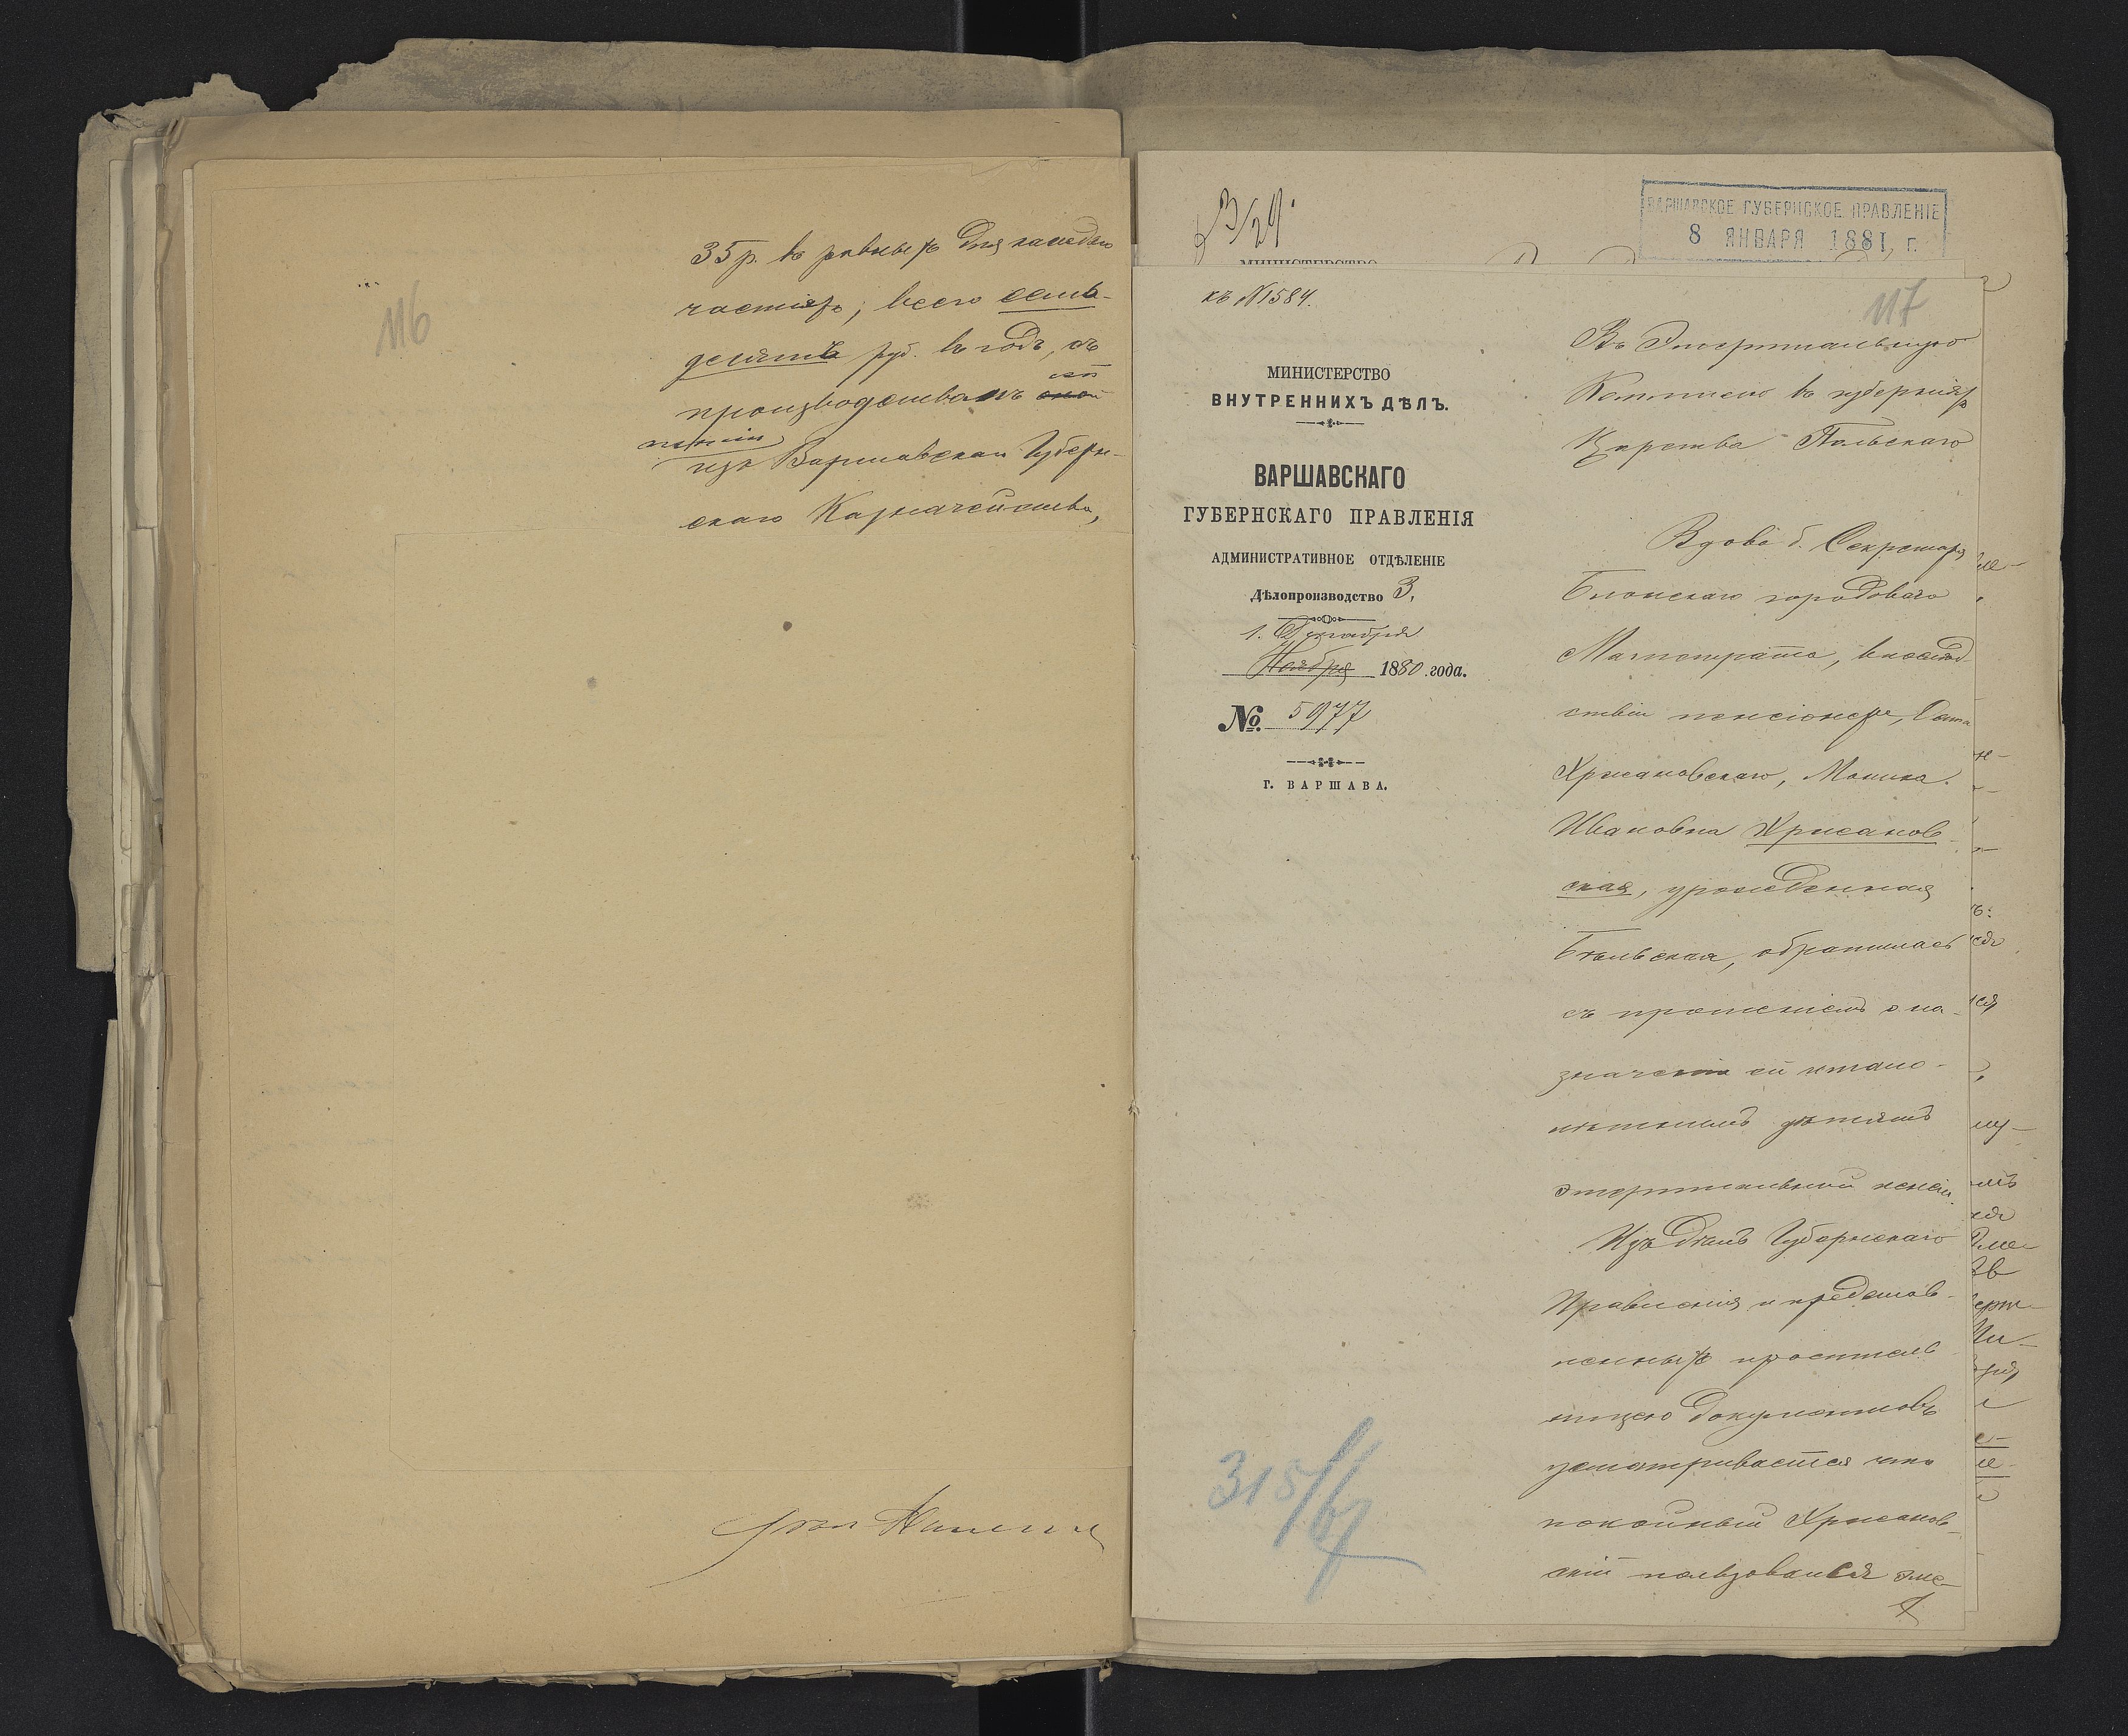 116
35 р. въ равныхъ для каждаго
частяхъ, всего семь-
десятъ руб. въ годъ, съ
производствомъ оной
ей
пенсіи
изъ Варшавскаго Губерн-
скаго Казначейства,
ВАРШАВСКОЕ ГУБЕРНСКОЕ ПРАВЛЕНІЕ
8 ЯНВАРЯ 1881 г.
МИНИСТЕРСТВО
къ №1584.
117
МИНИСТЕРСТВО
ВНУТРЕННИХЪ ДѢЛЪ.
ВАРШАВСКАГО
ГУБЕРНСКАГО ПРАВЛЕНІЯ
АДМИНИСТРАТИВНОЕ ОТДѢЛЕНІЕ
Дѣлопроизводство 3.
1. Декабря
Ноября 1880 года.
№ 5977
Г. ВАРШАВА.
315/67
Въ Эмеритальную
Коммисію въ губерніяхъ
Царства Польскаго
Вдова б. Секретаря
Блонскаго городоваго
Магистрата, впослѣд-
ствіи пенсіонера,
Хржановскаго, Моника
Ивановна Хржанов-
ская, урожденная
Бѣльская, обратилась
съ прошеніемъ о на-
значеніи ей и мало-
лѣтнимъ дѣтямъ
эмеритальной пенсіи.
Изъ дѣлъ Губернскаго
Правленія и представ-
ленныхъ проситель-
ницею документовъ
усматривается что
покойный Хржанов-
скій пользовался эме-